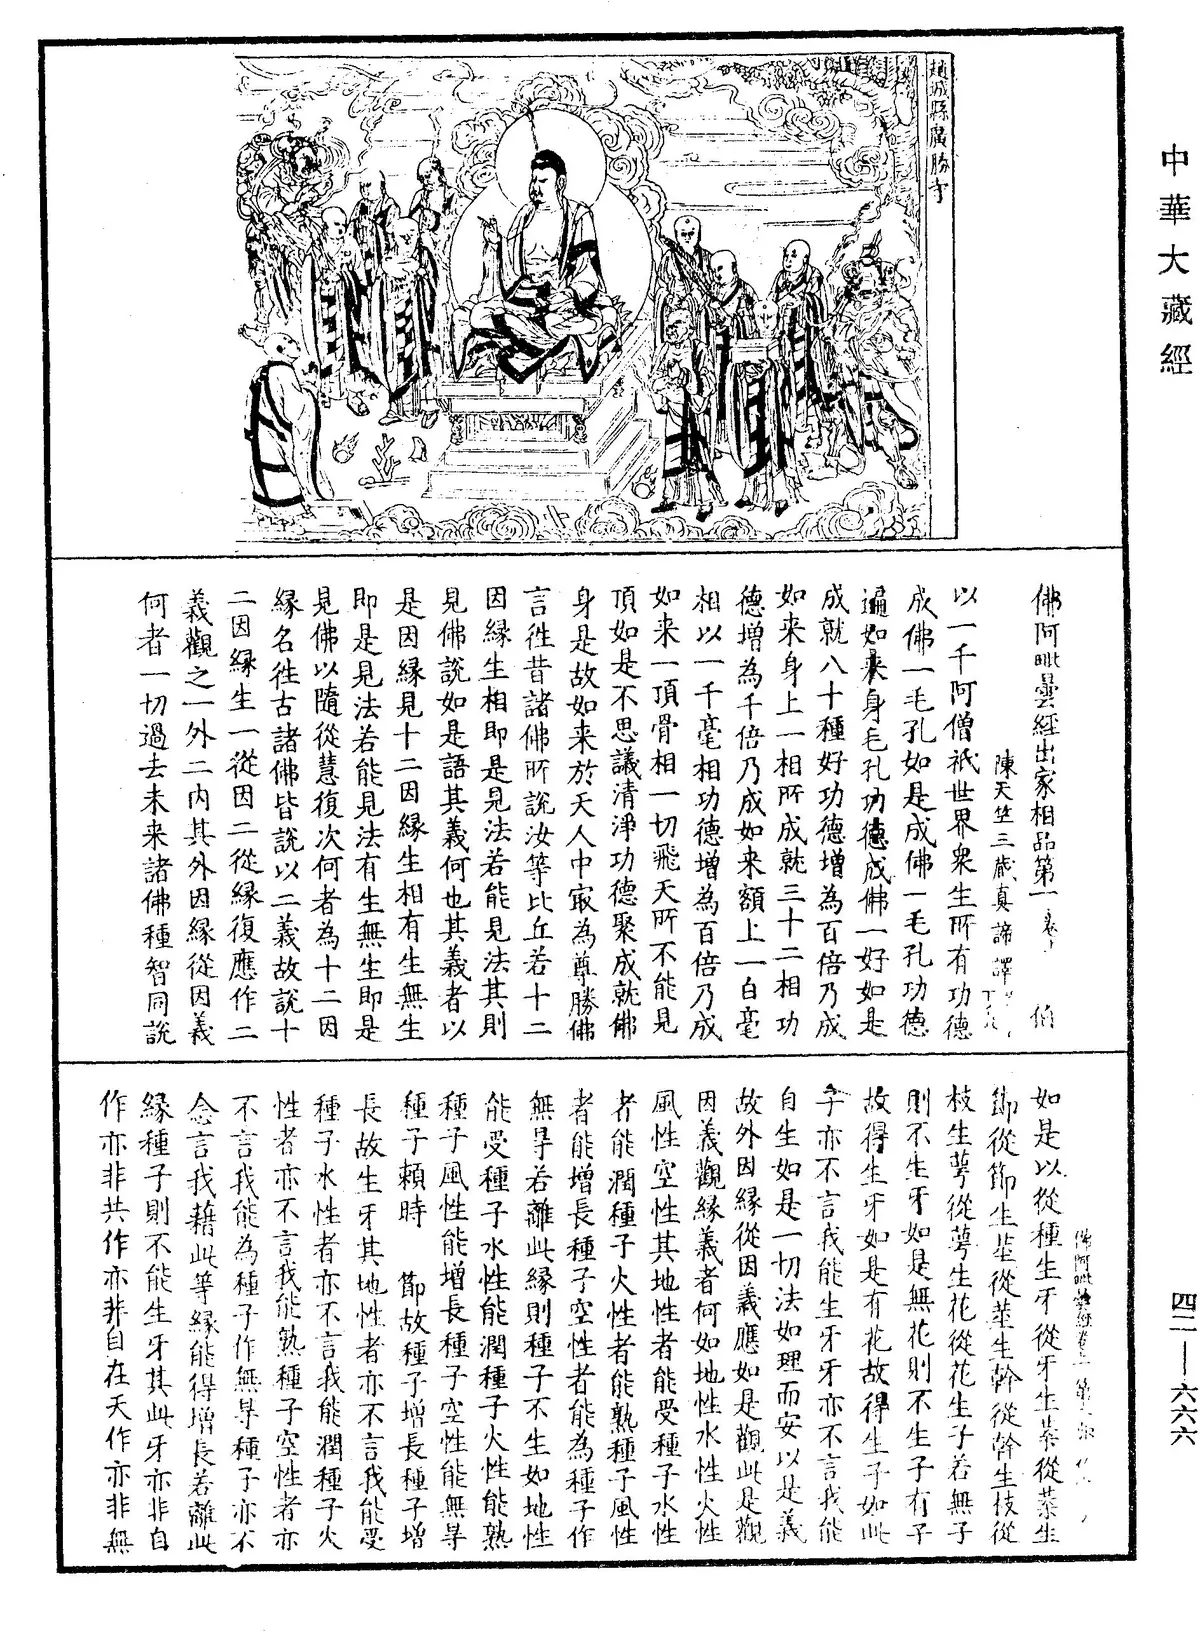 中華大藏經
趙城縣廣勝寺
佛阿毗曇經出家相品第一 伯
陳天竺三藏真諦譯
以一千阿僧祇世界衆生所有功德
成佛一毛孔如是成佛一毛孔功德
遍如来身毛孔功德成佛一好如是
成就八十種好功德增為百倍乃成
如来身上一相所成就三十二相功
德增為千倍乃成如来額上一白毫
相以一千毫相功德增為百倍乃成
如来一頂骨相一切飛天所不能見
頂如是不思議清淨功德聚成就佛
身是故如来於天人中㝡為尊勝佛
言徃昔諸佛所說汝等比丘若十二
因緣生相即是見法若能見法其則
見佛說如是語其義何也其義者以
是因緣見十二因緣生相有生無生
即是見法若能見法有生無生即是
見佛以隨從慧復次何者為十二因
緣名徃古諸佛皆說以二義故說十
二因緣生一從因二從緣復應作二
義觀之一外二内其外因緣從因義
何者一切過去未来諸佛種智同說
如是以從種生牙從牙生葉從葉生
節從節生莖從莖生幹從幹生枝從
枝生萼從萼生花從花生子若無子
則不生牙如是無花則不生子有子
故得生牙如是有花故得生子如此
子亦不言我能生牙牙亦不言我能
自生如是一切法如理而安以是義
故外因緣從因義應如是觀此是觀
因義觀緣義者何如地性水性火性
風性空性其地性者能受種子水性
者能潤種子火性者能熟種子風性
者能增長種子空性者能為種子作
無㝵若離此緣則種子不生如地性
能受種子水性能潤種子火性能熟
種子風性能增長種子空性能無㝵
種子賴時 節故種子增長種子增
長故生牙其地性者亦不言我能受
種子水性者亦不言我能潤種子火
性者亦不言我能熟種子空性者亦
不言我能為種子作無㝵種子亦不
念言我藉此等緣能得增長若離此
緣種子則不能生牙其此牙亦非自
作亦非共作亦非自在天作亦非無
佛阿毗曇經卷上
四二—六六六